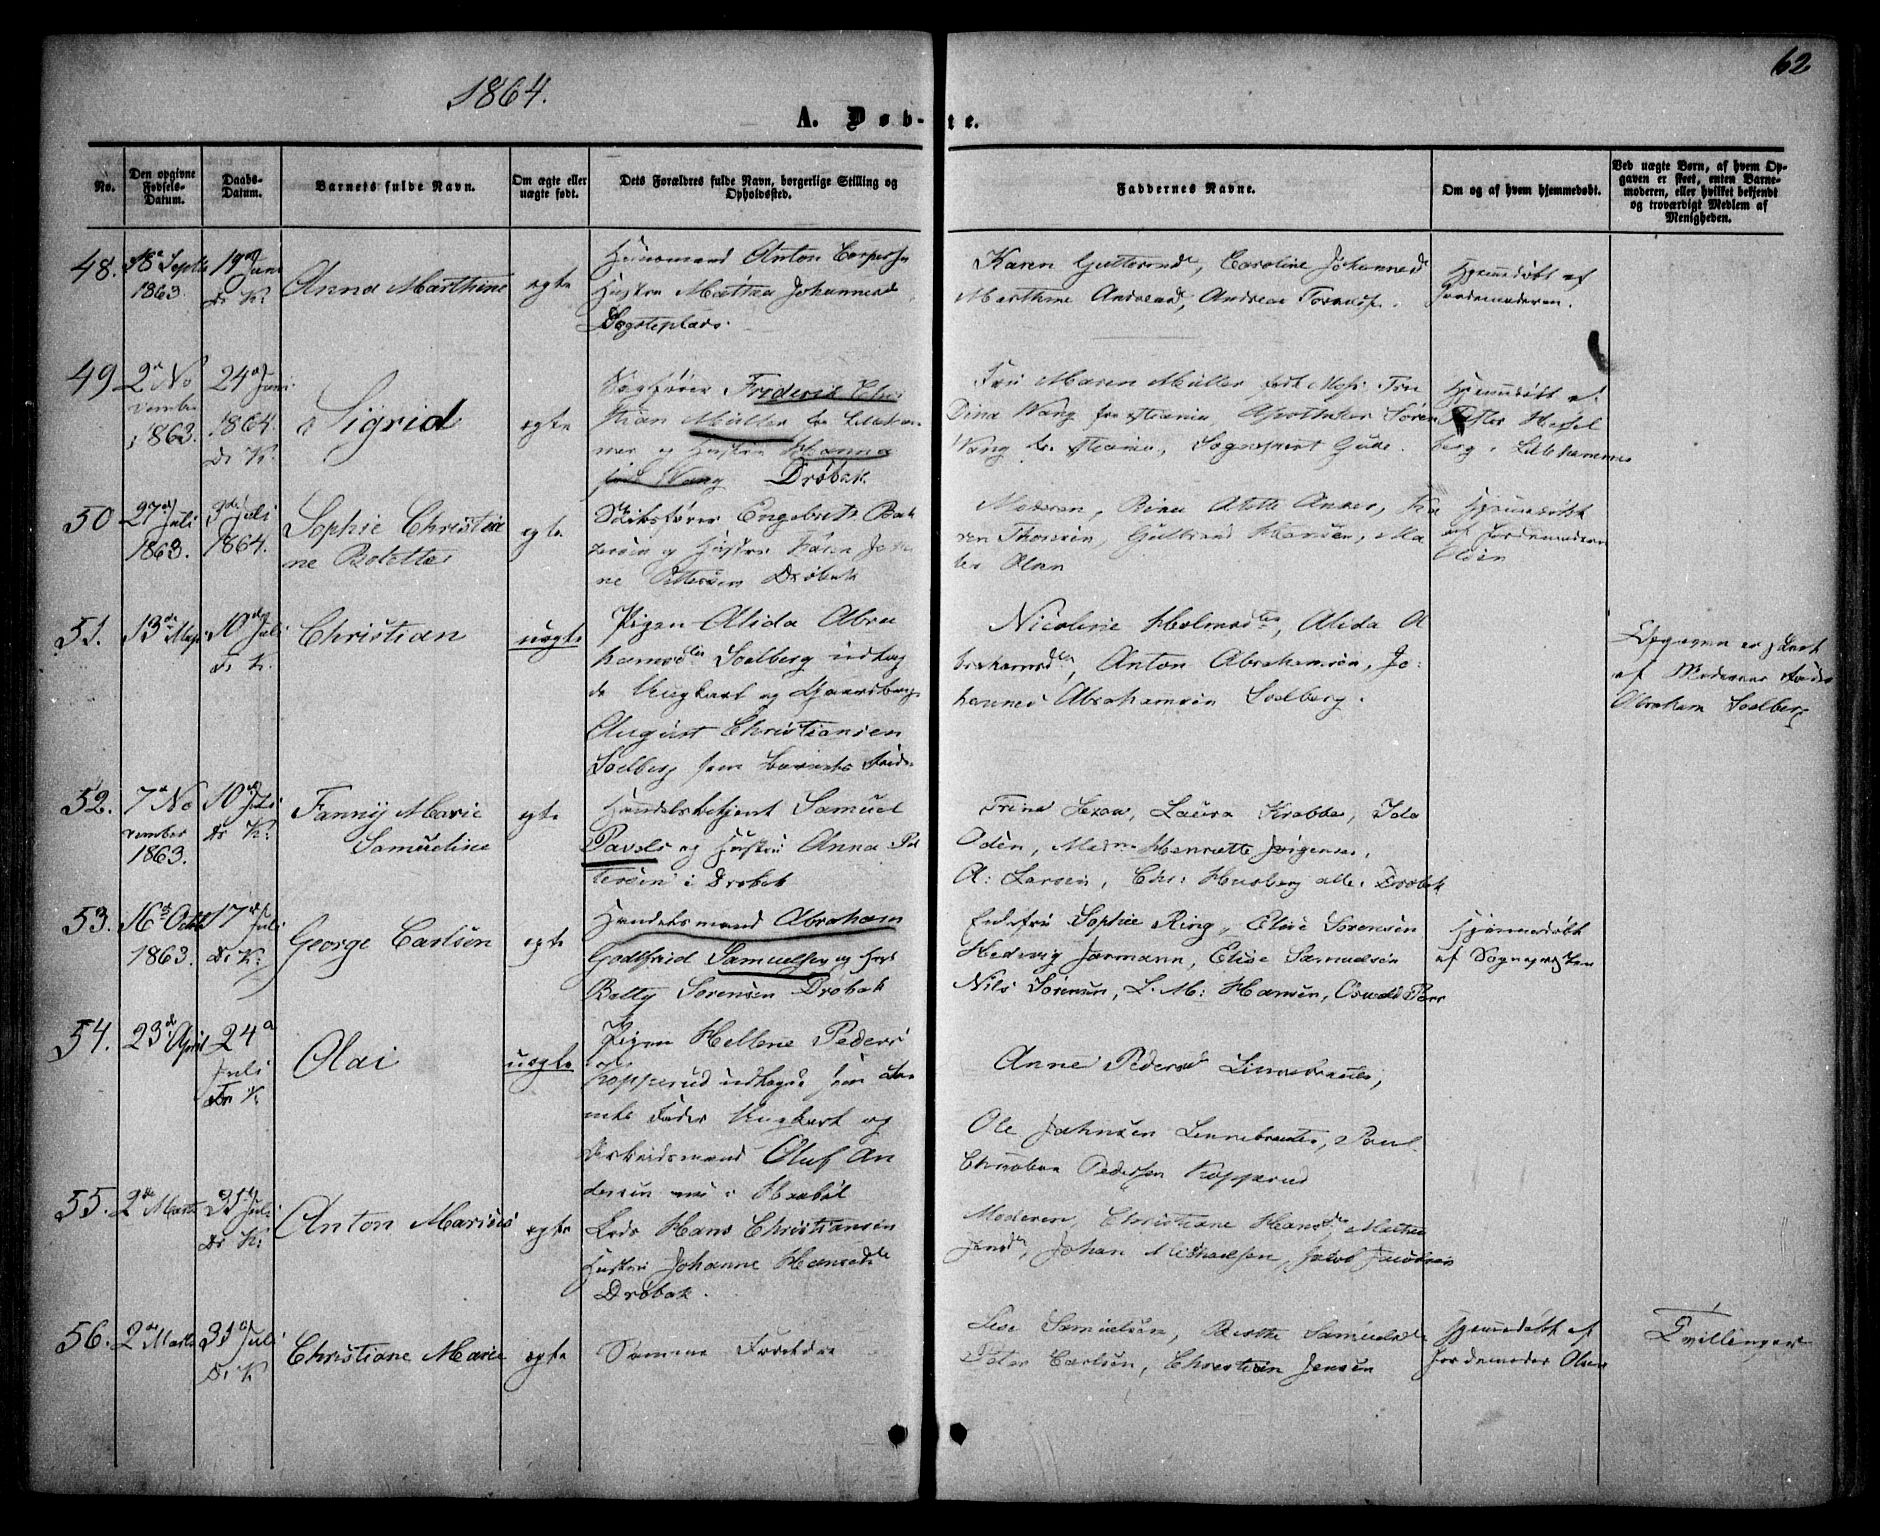 1864.
62
A. Døb-te.
No.
Den opgivne Fødsels-Datum.
Daabs-Datum.
Barnets fulde Navn.
Om ægte eller uægte født.
Dets Forældres fulde Navn, borgerlige Stilling og Opholdssted.
Faddernes Navne.
Om og af hvem hjemmedøbt.
Ved uægte Børn, af hvem Opgaven er skeet, enten Barnemoderen, eller hvilket bekjendt og troværdigt Medlem af Menigheden.
48.
18
1863.
19 Juni
Dr K:
Anna Marthine
ægte
Huusmand Anton
Hustru Mathea Johannesd
Karen Guttormsd, Caroline Johannesd
Marthine Andread, Andreas
Hjemmedøbt af
Jordemoderen.
49
2 No
vember
1863.
24 Juni
1864.
Dr K.
Sigrid
ægte
Sagfører Frederik Chri
stian Müller fra Lilleham
mer og Hustru Hanna
født Wang Drøbak
Fru Maren Müller født
Dina Wang fra, Apotheker Søren
Wang, Sogneprest Gude.
Hjemmedøbt af
Pastor Hessel
berg, Lillehammer
50
27 Juli
1863.
3de Juli
1864.
Sophie Christia
ne Bolette
ægte
Skibsfører Engebret
og Hustru Karen
ne Pettersen Drøbak
Moderen, Ka
ren Thoresen, Hansen, Ma
Olsen
Hjemmedøbt
af Jordemoderen
Olsen
51.
13de Mai
10 Juli
Dr K.
Christian
uægte
Pigen Alida Abra
hamsd Solberg udlag
de Ungkarl og Gaardbruger
August Christiansen
Solberg som Barnets Fader
Nicoline Holmsd, Alida A
brahamsd, Anton Abrahamsen, Jo
hannes Abrahamsen Solberg.
Opgaven er skeet
af Moderens Fader
Abraham Solberg
52.
7 No
vember
1863.
10 Juli
Dr K:
Fanny Marie
Samueline
ægte
Handelsbetjent Samuel
Pavels og Hustru Anna Pet
tersen i Drøbak
Trine, Laura Krabbe, Ida
Oden, Henriette Jørgensen,
A: Larsen, Chr: Husberg alle: Drøbak
53.
16 Octb
1863.
17 Juli
Dr K:
George Carlsen
ægte
Handelsmand Abraham
Godtfried Samuelsen og Hust
Betty Sørensen Drøbak
Enkefru Sophie Ring, Elise Sørensen
Hedevig Jarmann, Elise Samuelsen
Nils Sørensen, L. M: Hansen, Oswald
Hjemmedøbt
af Sognepresten
54.
23de April
24
Juli
Dr K
Olai
uægte
Pigen Hellene Peders
Kopperud udlagde som Bar
nets Fader Ungkarl og
Arbeidsmand Oluf An
dersen
Anne Pedersd Linnebraaten,
Ole Johnsen Linnebraaten, Paul
Pedersen Kopperud
55.
2de Marts
31 Juli
Dr K:
Anton Marius
ægte
Hans Christiansen
Hustru Johanne Hansdtr
Drøbak.
Moderen, Christiane Hansd, Mathea
Jensd, Johan Michaelsen, Jacob Jacobsen
56.
2de Marts
31 Juli
Dr K
Christiane Marie
ægte
Samme Forældre
Samuelsen, Berthe Samuelsd
Peter Carlsen, Christian Jensen
Hjemmedøbt af
Jordemoder Olsen
Tvillinger